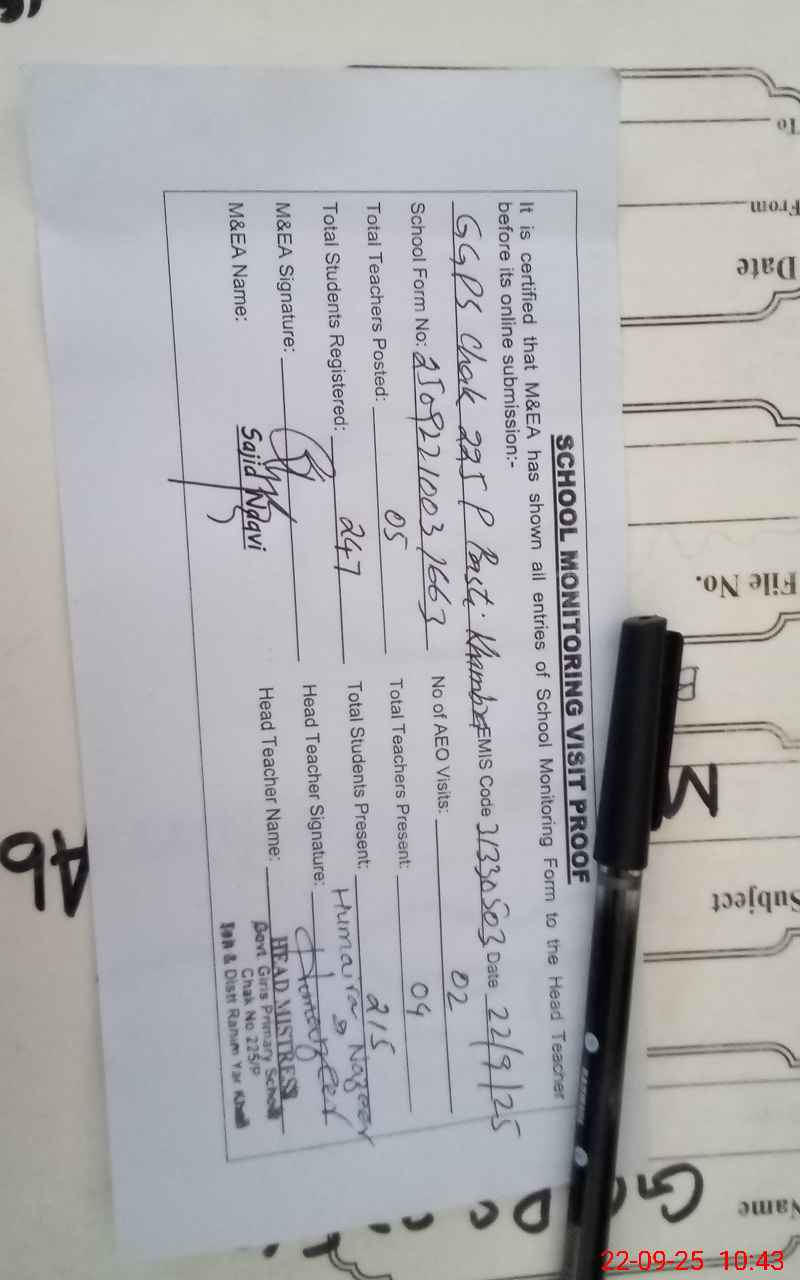 SCHOOL MONITORING VISIT PROOF
It is certified that M&EA has shown all entries of School Monitoring Form to the Head Teacher
before its online submission:-
GGPS Chak 225 P Basti Khambra EMIS Code 31330503 Date 22/9/25
School Form No: 25092210031663 No of AEO Visits: 02
Total Teachers Posted: 05 Total Teachers Present: 04
Total Students Registered: 247 Total Students Present: 215
M&EA Signature: Head Teacher Signature: Humaira Nazeer
M&EA Name: Sajid Naqvi Head Teacher Name:
HEAD MISTRESS
Govt. Girls Primary School
Chak No. 225/P
Teh & Distt Rahim Yar Khan
To
From
Date
File No.
Subject
Name
22-09-25 10:43